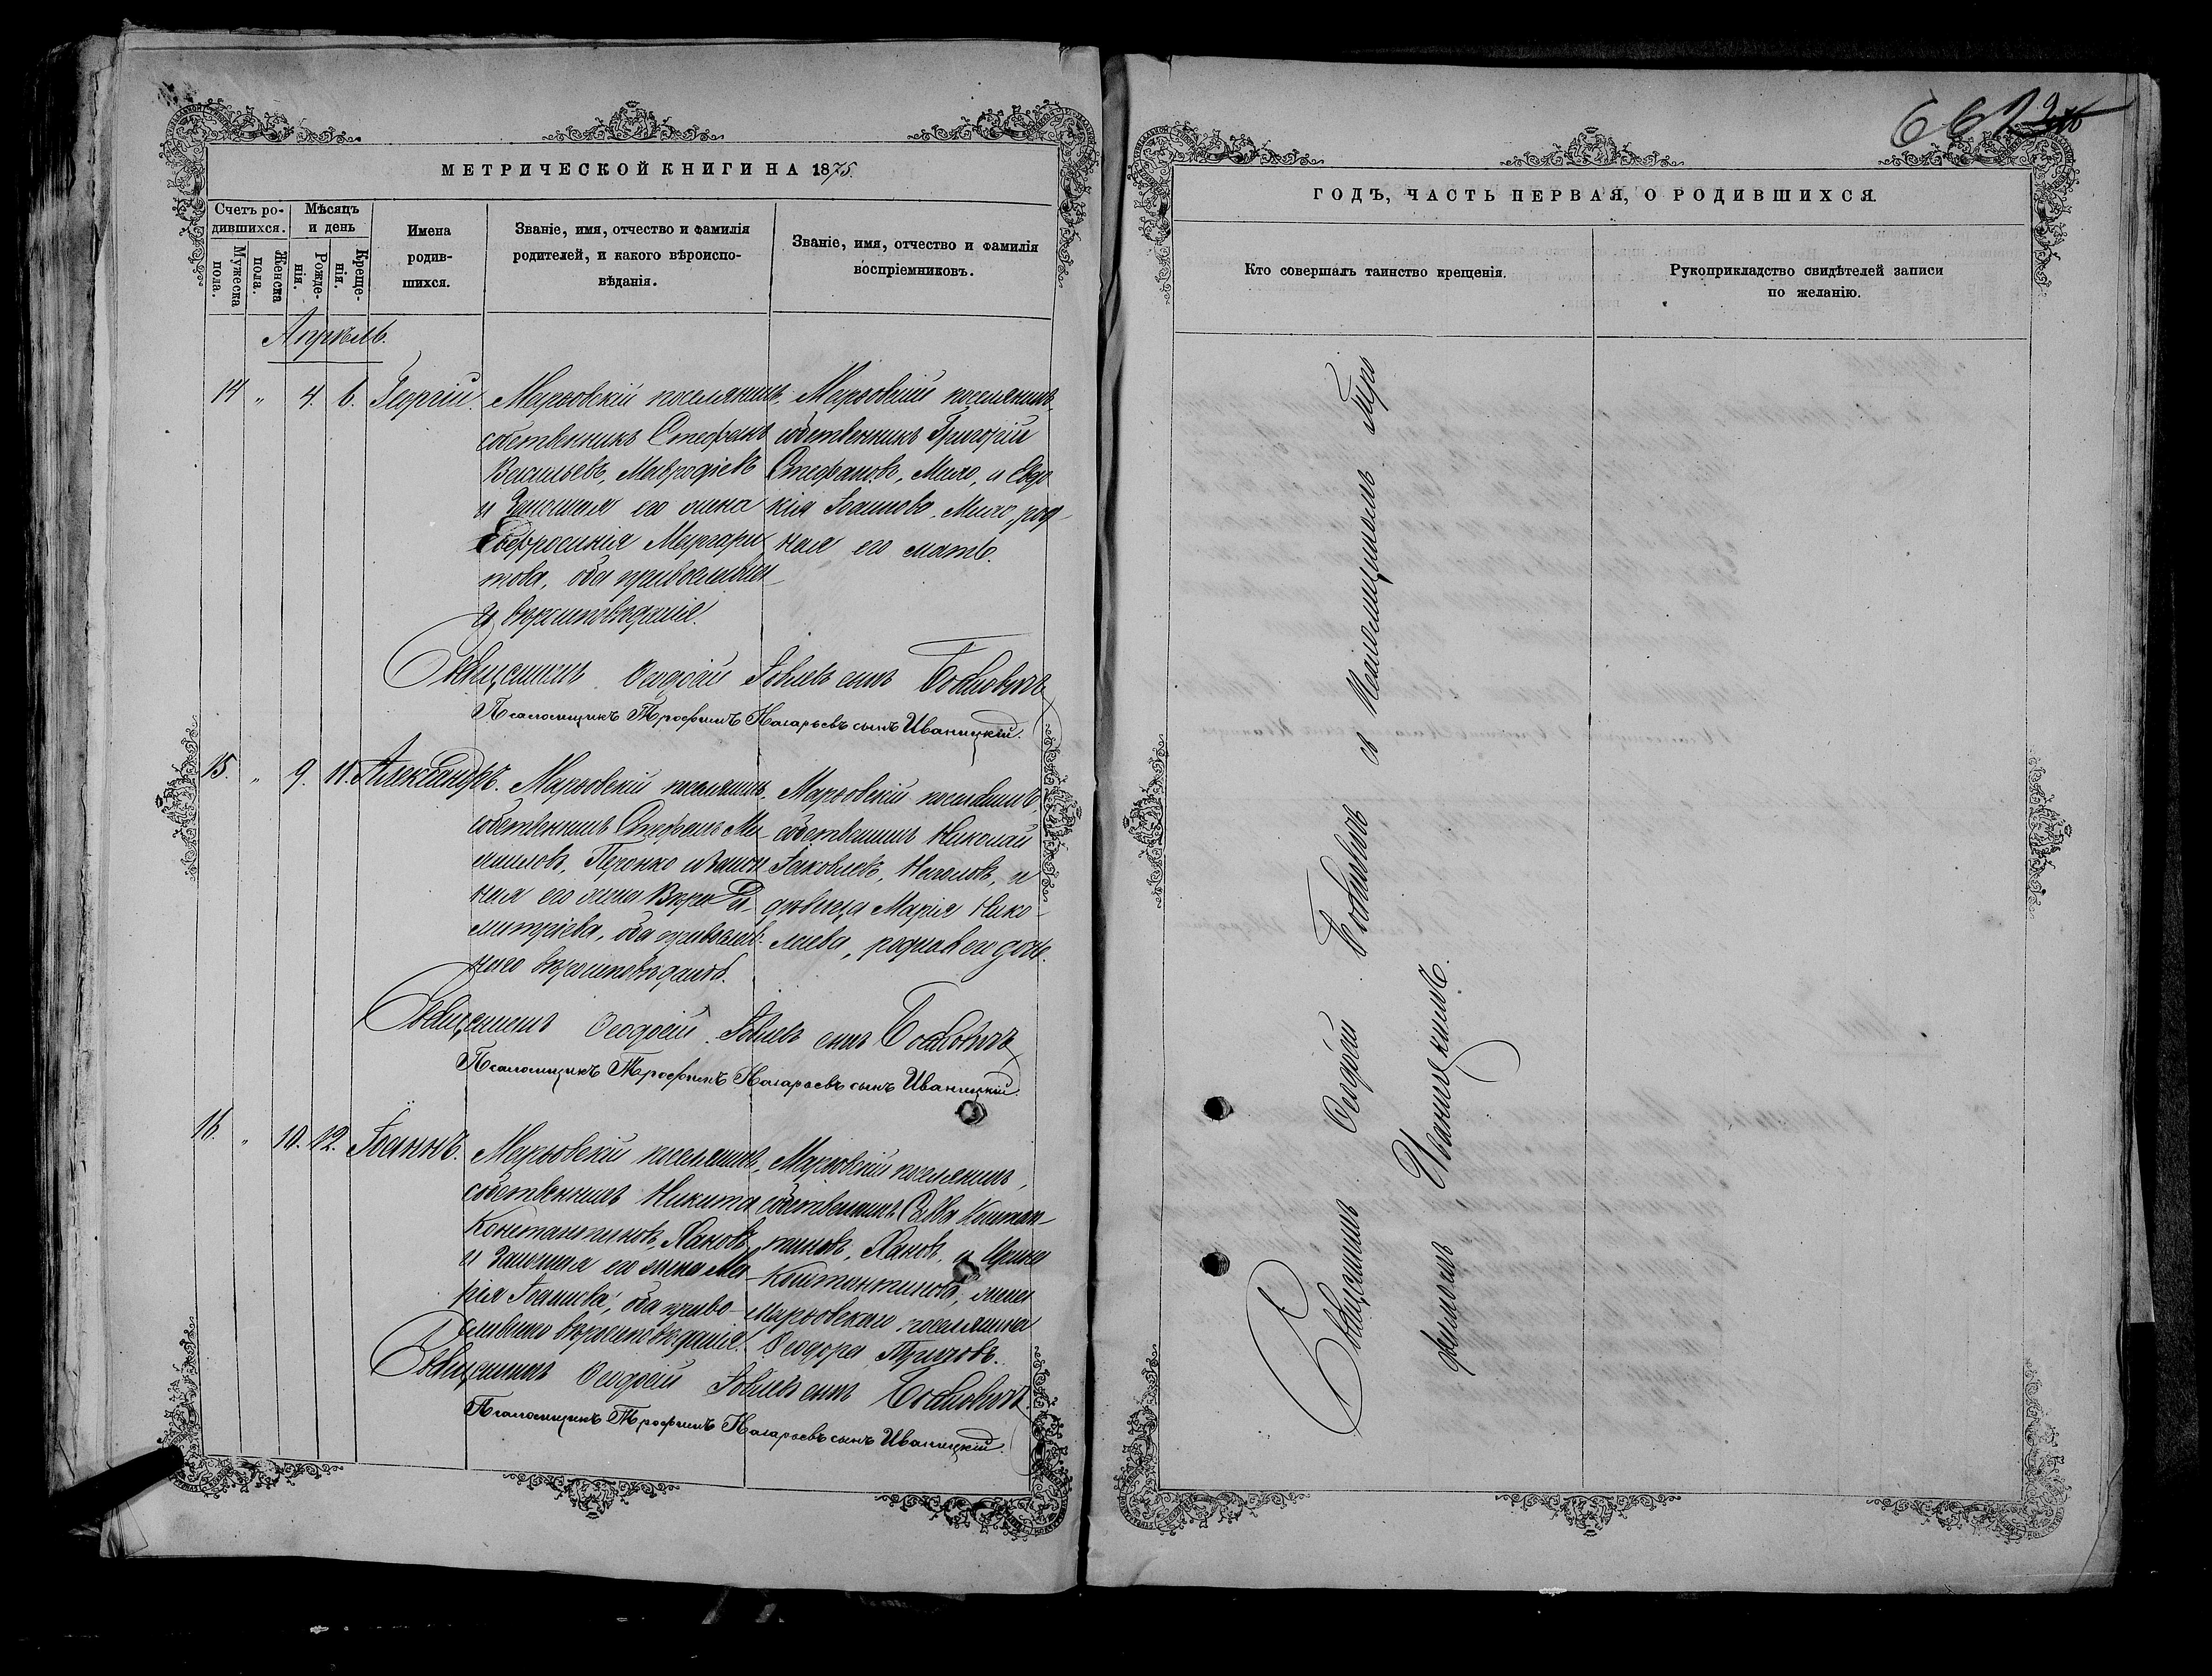 МЕТРИЧЕСКОЙ КНИГИ НА 1875.
Счетъ ро-
дившихся.
Мужеска
пола.
Женска
пола.
Мѣсяцъ
и день
Рожде-
нія.
Креще-
нія.
Имена
родив-
шихся.
Званіе, имя, отчество и фамилія
родителей, и какого вѣроиспо-
вѣданія.
Званіе, имя, отчество и фамилія
воспріемниковъ.
Апрѣль.
14 " 4. 6. Георгій.
поселянинъ
собственникъ Стефанъ
Васильевъ, Мавродіевъ
и Законная его жена
Евфросинія Маргари
това, оба православна
го вѣроисповѣданія.
поселянинъ
собственникъ Григорій
Стефановъ, и Евдо
кія Іоаннова, род
ная его мать.
Священникъ Ѳеодосій Іовлевъ сынъ
Псаломщикъ Трофимъ Назарьевъ сынъ Иваницкій.
15. " 9. 11. Александръ.
поселянинъ,
собственникъ Стефанъ Ми
хаиловъ, и Закон
ная его жена Вѣра Ди-
митріева, оба православ-
наго вѣроисповѣданія.
поселянинъ,
собственникъ Николай
Іаковлевъ, и
дѣвица Марія Нико-
лаева, родная его дочь.
Священникъ Ѳеодосій Іовлевъ сынъ
Псаломщикъ Трофимъ Назарьевъ сынъ Иваницкій.
16. " 10. 12. Іоаннъ.
поселянинъ,
собственникъ Никита
Константиновъ, Хановъ,
и Законная его жена Ма-
рія Іоаннова, оба право-
славнаго вѣроисповѣданія.
поселянинъ,
собственникъ Савва Констан-
тиновъ, Хановъ, и Ирина
Константинова, жена
поселянина
Ѳеодора
Священникъ Ѳеодосій Іовлевъ сынъ
Псаломщикъ Трофимъ Назарьевъ сынъ Иваницкій.
ГОДЪ, ЧАСТЬ ПЕРВАЯ, О РОДИВШИХСЯ.
Кто совершалъ таинство крещенія.
Рукоприкладство свидѣтелей записи
по желанію.
Священникъ Ѳеодосій съ Псаломщикомъ Тро
фимомъ Иваницкимъ.